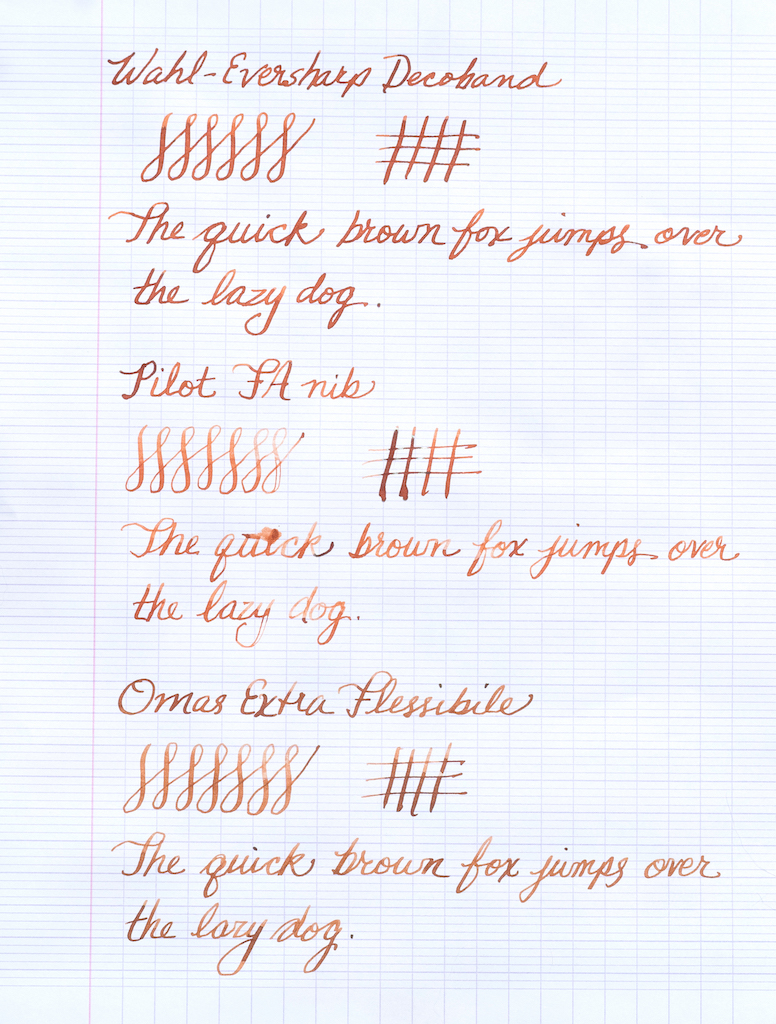 Wahl-Eversharp Decoband
The quick brown fox jumps over
the lazy dog.
Pilot FA nib
The quick brown fox jumps over
the lazy dog.
Omas Extra Flessibile
The quick brown fox jumps over
the lazy dog.